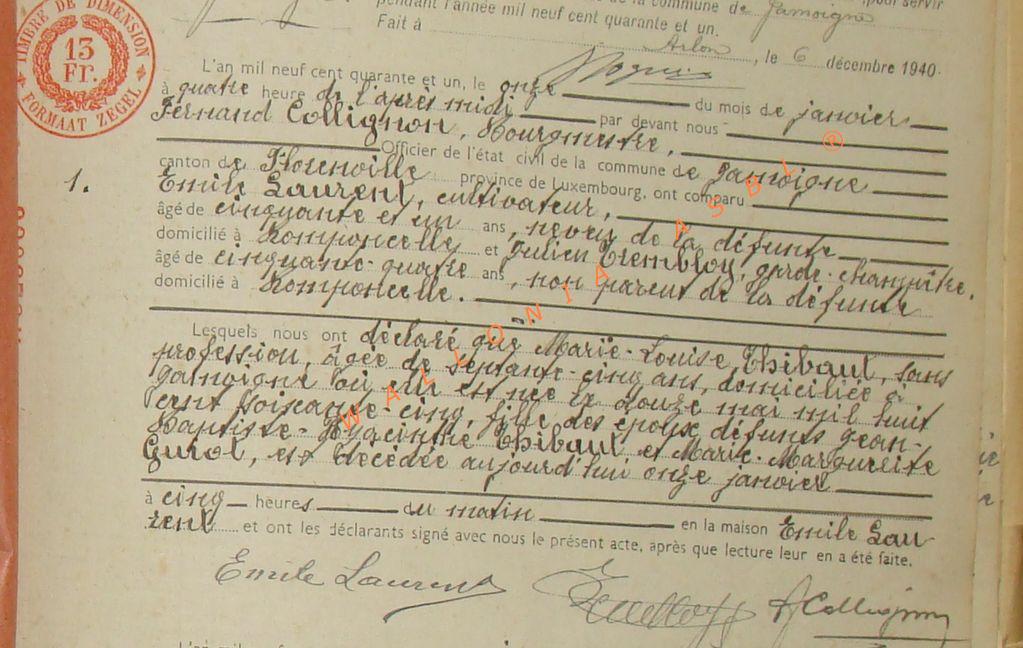 TIMBRE DE DIMENSION
13
Fr.
FORMAAT ZEGEL
de la commune de Jamoigne, pour servir
pendant l'année mil neuf cent quarante et un.
Fait à Arlon, le 6 décembre 1940.
L'an mil neuf cent quarante et un, le onze du mois de janvier
à quatre heure de l'après midi par devant nous
Fernand Collignon, Bourgmestre,
Officier de l'état civil de la commune de Jamoigne
1.
canton de Florenville province de Luxembourg, ont comparu
Emile Laurent, cultivateur,
âgé de cinquante et un ans, neveu de la défunte
domicilié à Romponcelle et Julien Trembloy, garde-champêtre,
âgé de cinquante-quatre ans, non parent de la défunte
domicilié à Romponcelle.
Lesquels nous ont déclaré que Marie-Louise Thibaut, sans
profession, âgée de septante-cinq ans, domiciliée à
Jamoigne où elle est née le douze mai mil huit
cent soixante-cinq, fille des époux défunts Jean-
Baptiste-Hyacinthe Thibaut et Marie-Marguerite
Guiot, est décédée aujourd'hui onze janvier
à cinq heures du matin en la maison Emile Lau
rent et ont les déclarants signé avec nous le présent acte, après que lecture leur en a été faite.
Emile Laurent
Collignon
WALLONIA ASBL ®
L'an mil neuf